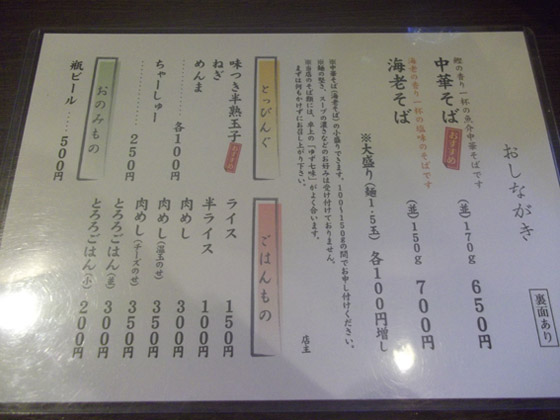 おしながき
裏面あり
鰹の香り一杯の魚介中華そばです
中華そば おすすめ (並) 170g 650円
海老の香り一杯の塩味のそばです
海老そば (並) 150g 700円
※大盛り(麺1.5玉) 各100円増し
※中華そば(海老そば)の小盛りできます。100〜150gの間でお申し付けください。
※麺の堅さ、スープの濃さなどのお好みは受け付けておりません。
※当店のそば類には、卓上の「ゆず七味」がよく合います。
まずは何もかけずにお召し上がり下さい。
店主
とっぴんぐ
味つき半熟玉子 おすすめ
ねぎ
めんま
‥‥‥‥ 各100円
ちゃーしゅー
‥‥‥‥ 250円
おのみもの
瓶ビール ‥‥‥ 500円
ごはんもの
ライス 150円
半ライス 100円
肉めし 300円
肉めし(温玉のせ) 350円
肉めし(チーズのせ) 350円
とろろごはん(並) 300円
とろろごはん(小) 200円